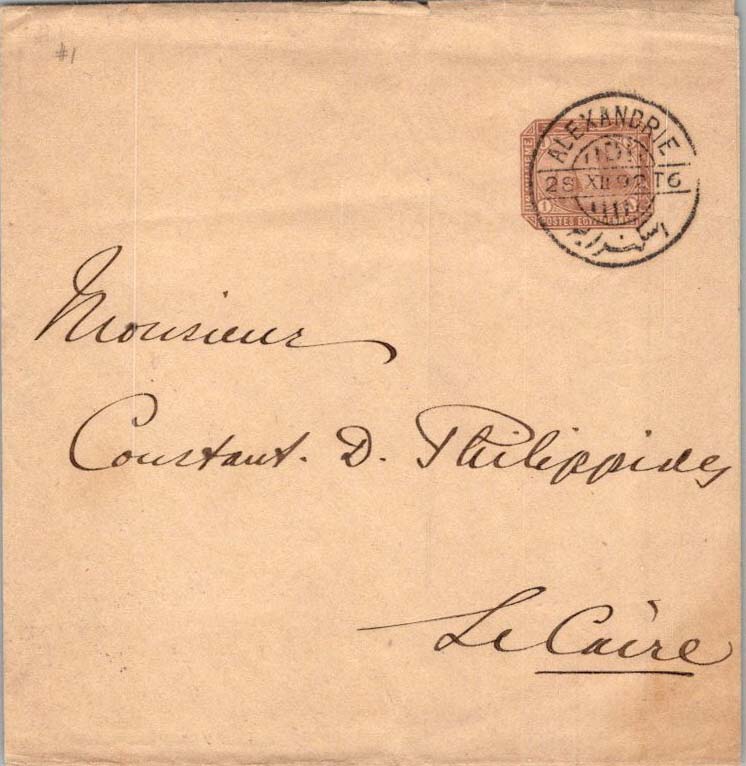 #1
ALEXANDRIE
28 XII 92 T6
1
POSTES EGY
Monsieur
Constant. D. Philippides
Le Caire